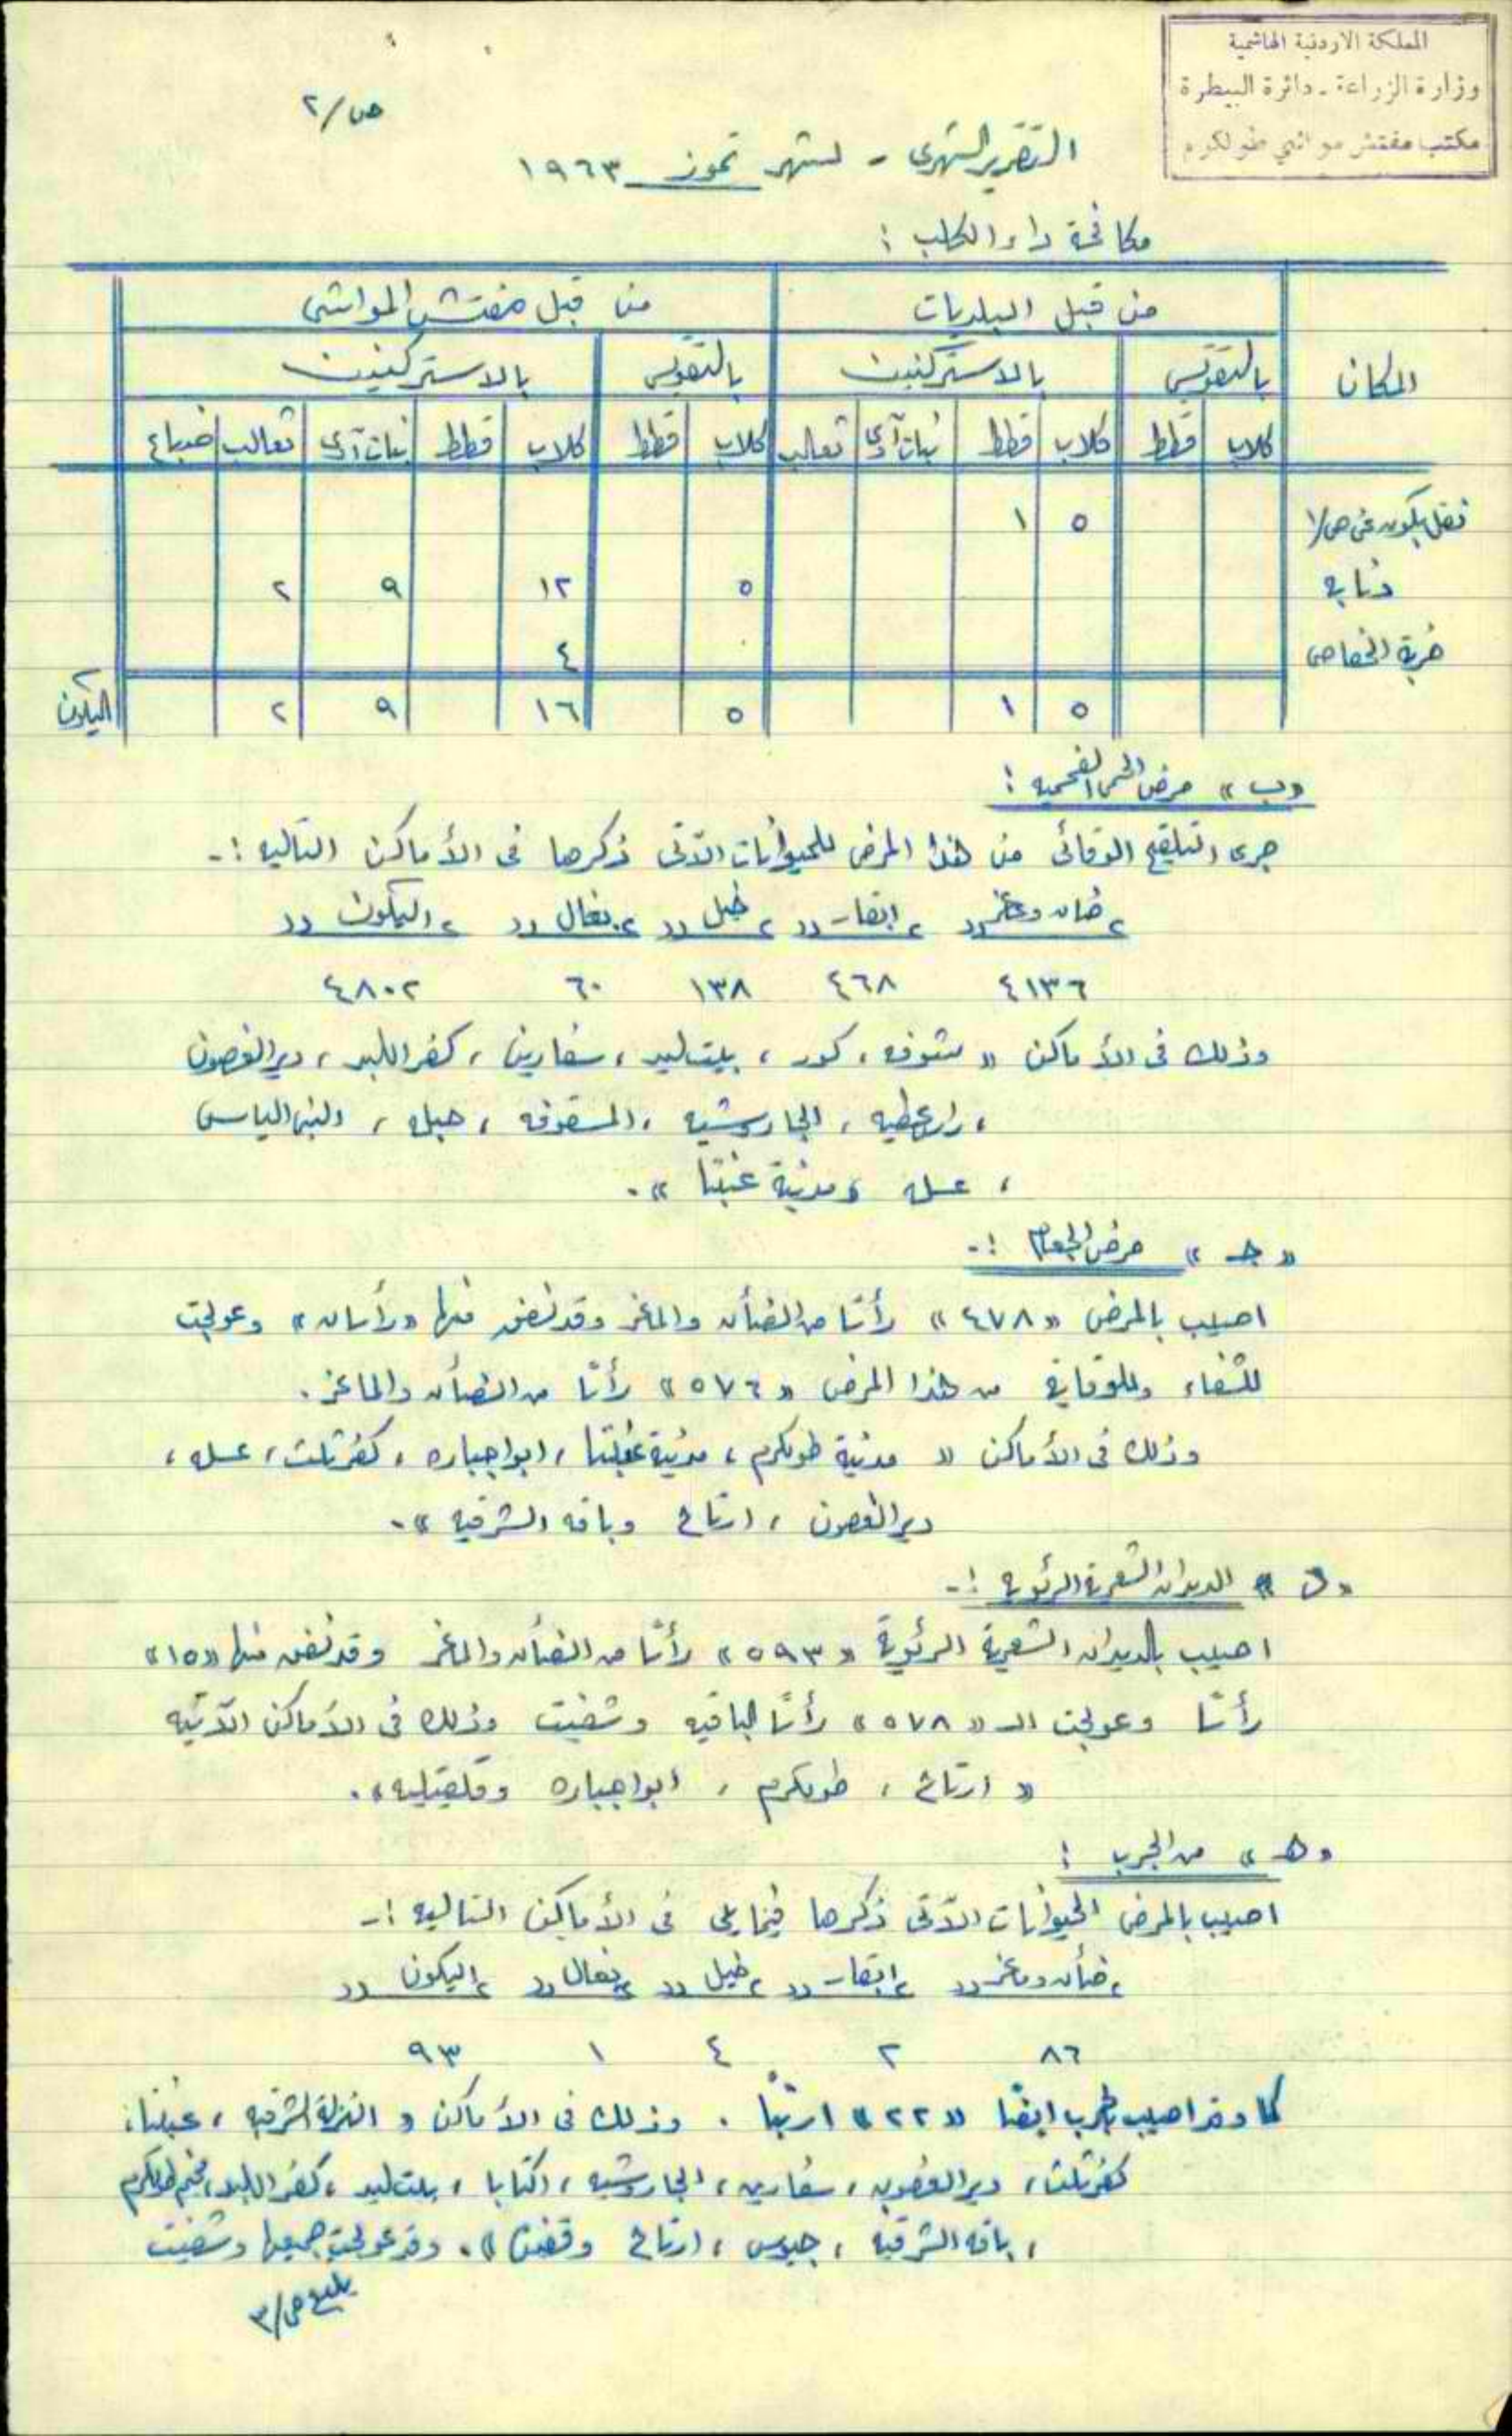 المملكة الاردنية الهاشمية
وزارة الزراعة - دائرة البيطرة
مكتب مفتش مواشي طولكرم
ص/٢
التقرير الشهرى - لشهر تموز ١٩٦٣
مكافحة داء الكلب :
المكان | من قبل البلديات | من قبل مفتش المواشى
بالتقويس | بالاستركنين | بالتقويس | بالاستركنين
كلاب | قطط | كلاب | قطط | بنات آوى | ثعالب | كلاب | قطط | كلاب | قطط | بنات آوى | ثعالب | ضباع
نقل يكون عن ص/١ ٥ ١
دنابه ٥ ١٢ ٩ ٢
خربة ٤
٥ ١ ٥ ١٦ ٩ ٢ اليكون
«ب» مرض الحمى الفحميه :
جرى التلقيح الوقائى من هذا المرض للحيوانات الآتى ذكرها فى الأماكن التاليه :-
«ضان وماعز» «ابقار» «خيل» «بغال» «اليكون»
٤١٣٦ ٤٦٨ ١٣٨ ٦٠ ٤٨٠٢
وذلك فى الأماكن « شوفه ، كور ، بيت ليد ، سفارين ، كفر اللبد ، دير الغصون
، الجاروشيه ، المسقوفه ، حبله ، النبى الياس
، عسله ومدينة عنبتا » .
«جـ» مرض :-
اصيب بالمرض «٤٧٨» رأسًا من الضأن والماعز وقد نفق منها «رأسان» وعولجت
للشفاء وللوقاية من هذا المرض «٥٧٦» رأسًا من الضأن والماعز .
وذلك فى الأماكن « مدينة طولكرم ، مدينة عنبتا ، ، كفر ثلث ، عسله ،
دير الغصون ، ارتاح وباقه الشرقيه » .
«د» الديدان الشعرية الرئويه :-
اصيب بالديدان الشعرية الرئوية «٥٩٣» رأسًا من الضأن والماعز وقد نفق منها «١٥»
رأسًا وعولجت الـ «٥٧٨» رأسًا الباقيه وشفيت وذلك فى الأماكن الآتيه
« ارتاح ، طولكرم ، وقلقيليه » .
«هـ» من الجرب :
اصيب بالمرض الحيوانات الآتى ذكرها فيما يلى فى الأماكن التاليه :-
«ضأن وماعز» «ابقار» «خيل» «بغال» «اليكون»
٨٦ ٢ ٤ ١ ٩٣
كما وقد اصيب بالجرب ايضًا «٢٢» ارنبًا . وذلك فى الأماكن « النزلة الشرقيه ، عنبتا ،
كفر ثلث ، دير الغصون ، سفارين ، الجاروشيه ، اكتابا ، بيت ليد ، كفر اللبد ، مخيم طولكرم
، باقه الشرقيه ، جيوس ، ارتاح وقفين » . وقد عولجت جميعها وشفيت
يتبع ص/٣